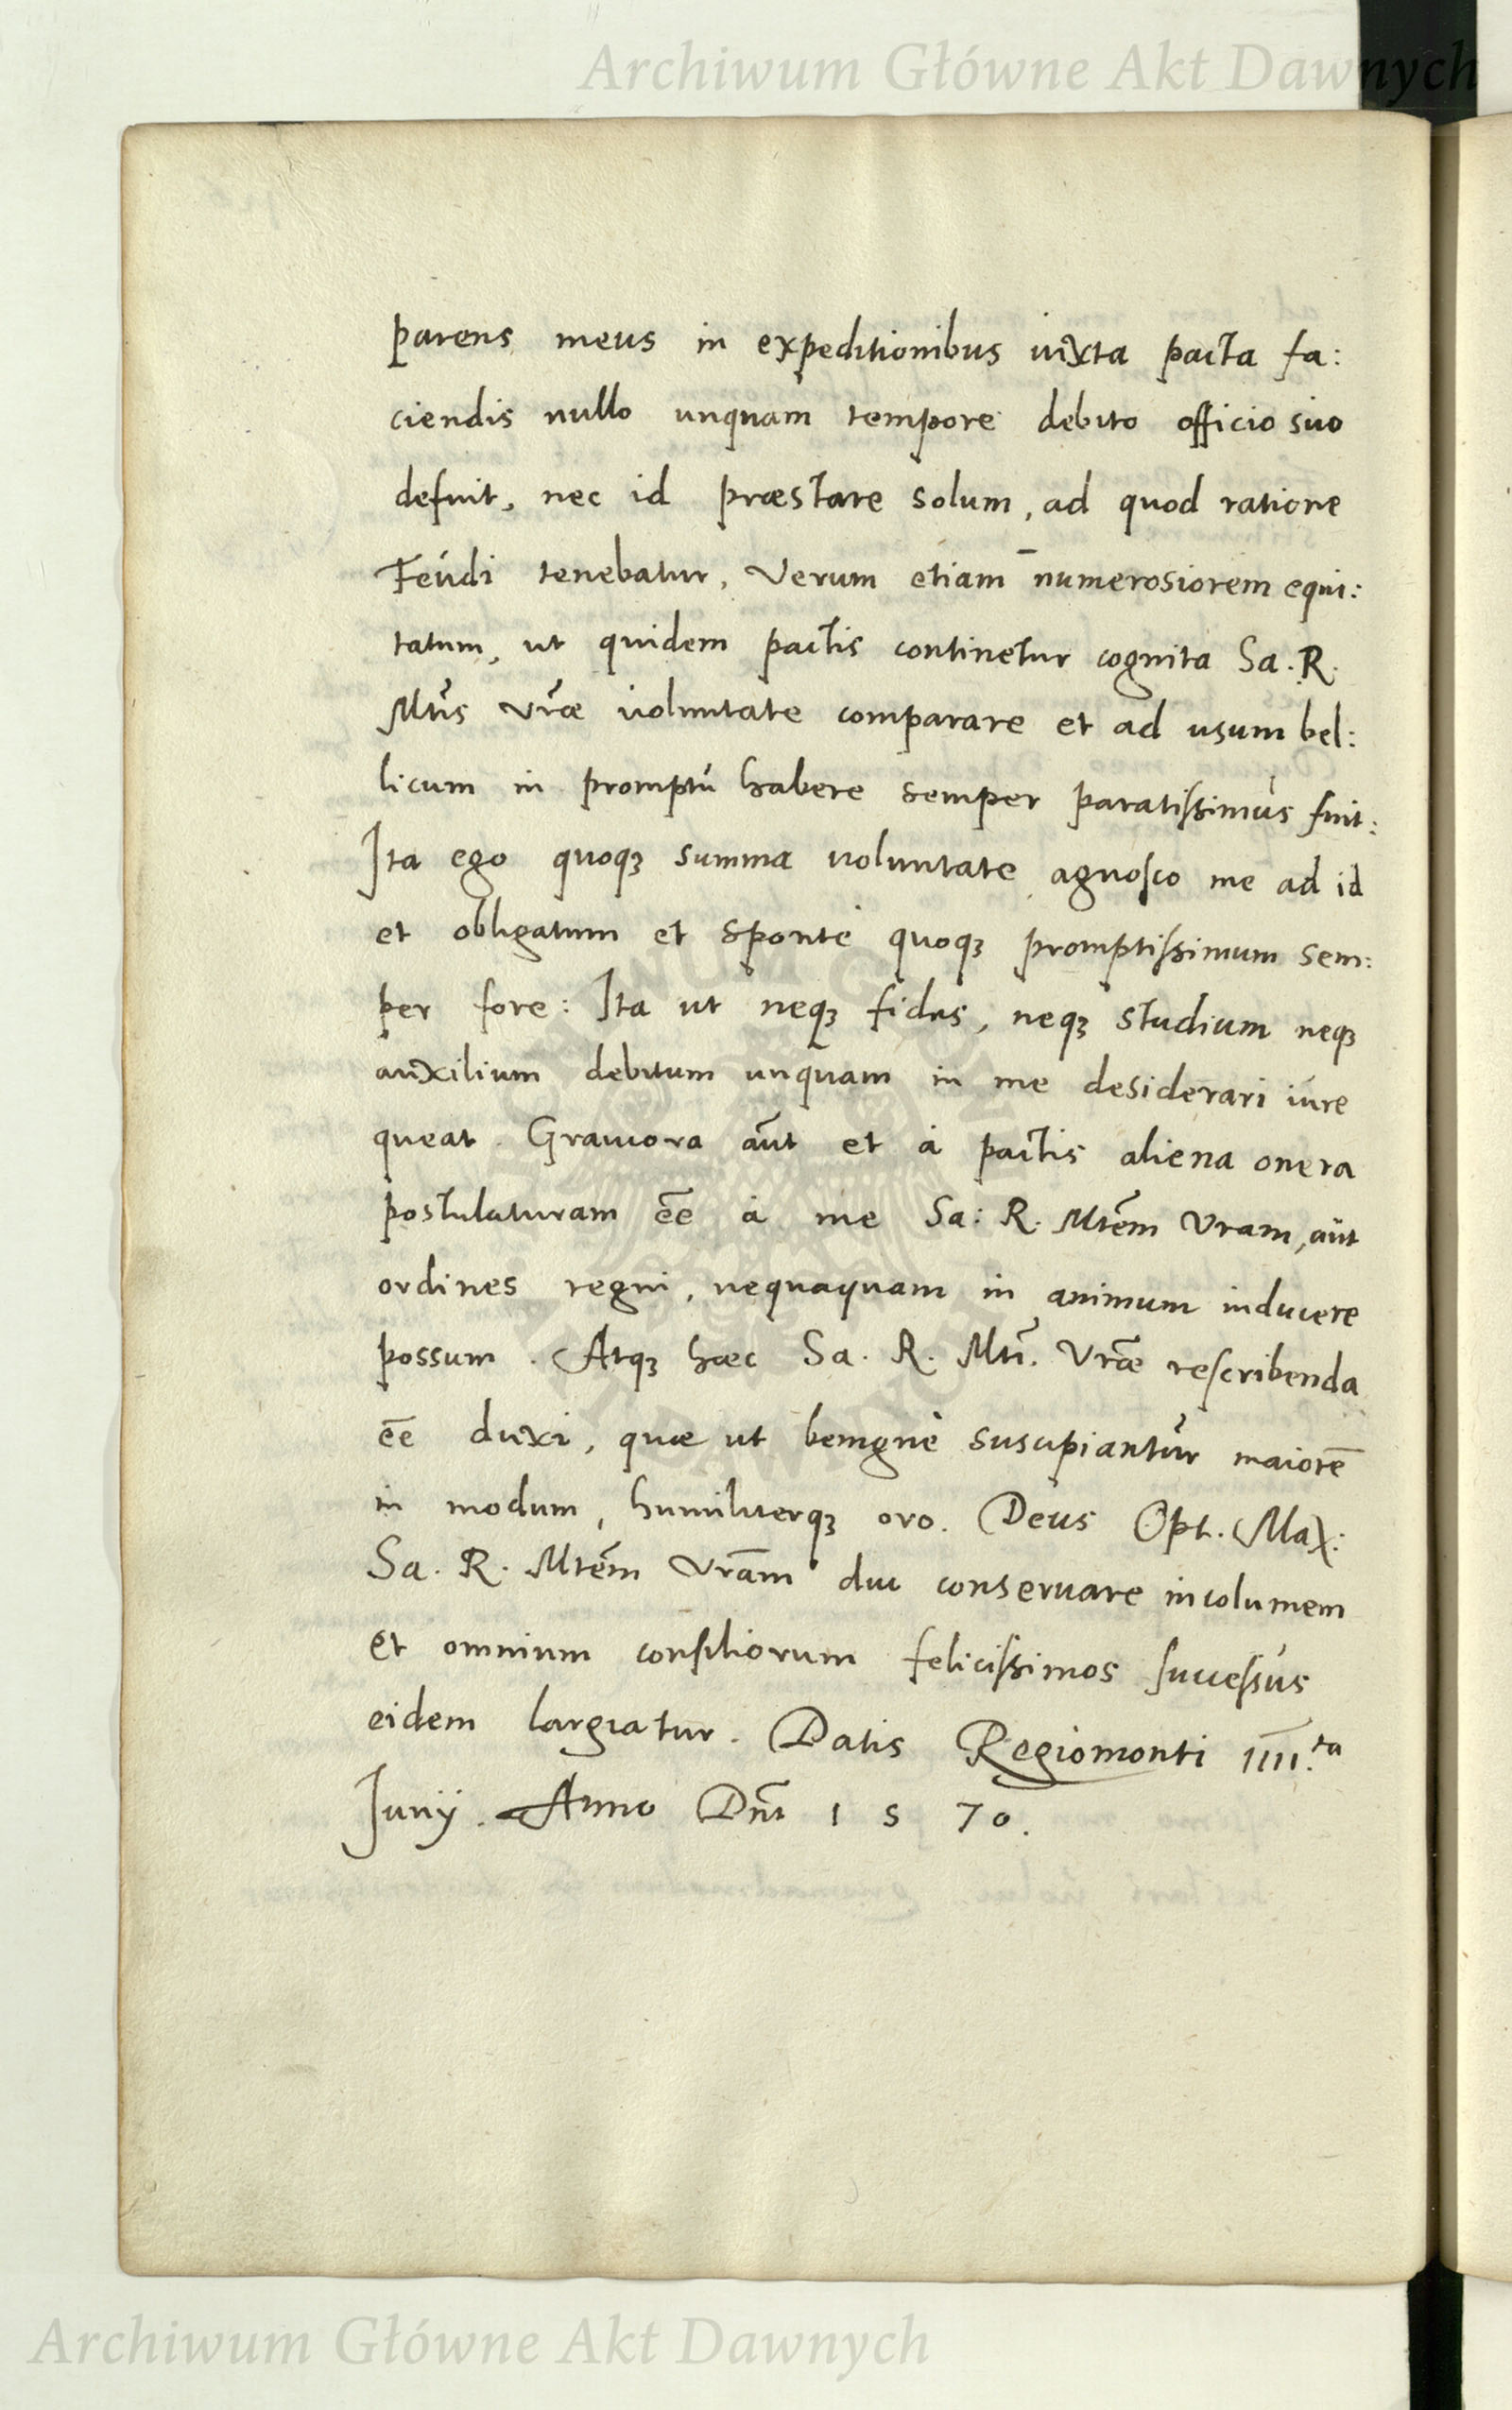 Archiwum Główne Akt Dawnych
parens meus in expeditionibus iuxta pacta fa:
ciendis nullo unquam tempore debito officio suo
defuit, nec id præstare solum, ad quod ratione
Feudi tenebatur, Verum etiam numerosiorem equi:
tatum, ut quidem pactis continetur cognita Sa. R.
Mtis Vræ uoluntate comparare et ad usum bel:
licum in promptu habere semper paratissimus fuit:
Ita ego quoqꝫ summa uoluntate agnosco me ad id
et obligatum et sponte quoqꝫ promptissimum sem:
per fore: Ita ut neqꝫ fides, neqꝫ studium neqꝫ
auxilium debitum unquam in me desiderari iure
queat. Grauiora aũt et à pactis aliena onera
postulaturam eẽ à me Sa: R. Mtẽm Vram, aut
ordines regni, nequaquam in animum inducere
possum. Atqꝫ hæc Sa. R. Mti. Vræ rescribenda
eẽ duxi, quæ ut benignè suscipiantur maiorẽ
in modum, humiliterqꝫ oro. Deus Opt. Max:
Sa. R. Mtẽm Vrãm diu conseruare incolumem
et omnium consiliorum felicissimos successus
eidem largiatur. Datis Regiomonti IIII.ta
Iunij. Anno Dñi 1570.
Archiwum Główne Akt Dawnych